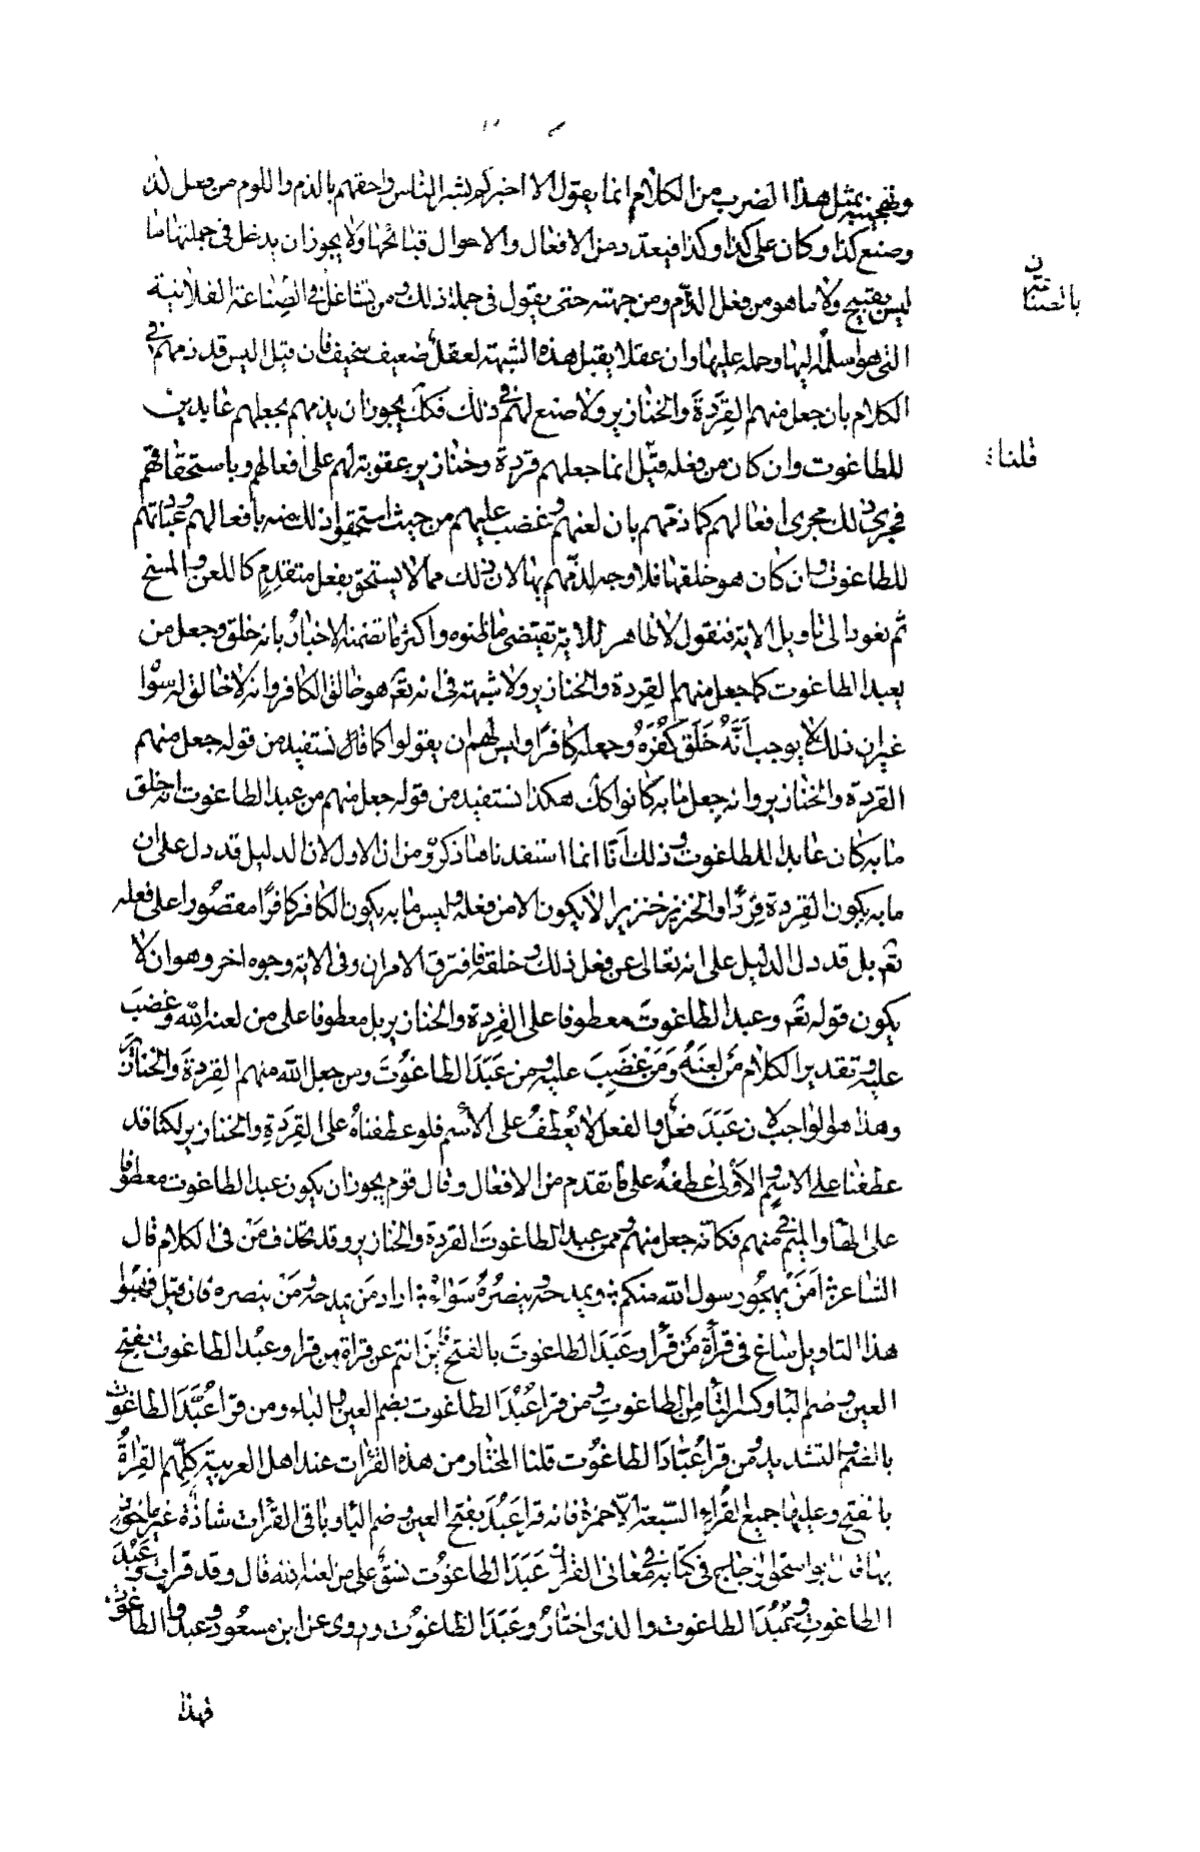 وتهجينه بمثل هذا الضرب من الكلام انما يقول الا اخبركم بشر الناس واحقهم بالذم واللوم من فعل كذا
وصنع كذا وكان على كذا وكذا فيعدد من الافعال والاحوال قبائحها ولا يجوز ان يدخل في جملتها ما
ليس بقبيح ولا ما هو من فعل الذام ومن جهته حتى يقول في جملة ذلك ومن تشاغل في الصناعة الفلانية
التي هو اسلمه اليها وحمله عليها وان عقلا يقبل هذه الشبهة لعقل ضعيف سخيف فان قيل اليس قد ذمهم في
الكلام بان جعل منهم القردة والخنازير ولا صنع لهم في ذلك فكك يجوز ان يذمهم بجعلهم عابدين
للطاغوت وان كان من فعله قيل انما جعلهم قردة وخنازير عقوبة لهم على افعالهم وباستحقاقهم
فجرى ذلك مجرى افعالهم كما ذمهم بان لعنهم وغضب عليهم من حيث استحقوا ذلك منه بافعالهم وعباداتهم
للطاغوت وان كان هو خلقها فلا وجه لذمهم بها لان ذلك مما لا يستحق بفعل متقدم كاللعن والمسخ
ثم نعود الى تاويل الاية فنقول لا ظاهر للاية يقتضى ما ظنوه واكثر ما تضمنه الاخبار بانه خلق وجعل من
يعبد الطاغوت كما جعل منهم القردة والخنازير ولا شبهة في انه تعه هو خالق الكافر وانه لا خالق له سوا
غير ان ذلك لا يوجب اَنَّهُ خَلَقَ كُفْرَهُ وجعله كافرًا وليس لهم ان يقولوا كما قال نستفيد من قوله جعل منهم
القردة والخنازير وانه جعل ما به كانوا كك هكذا نستفيد من قوله جعل منهم من عبد الطاغوت انه خلق
ما به كان عابدا للطاغوت وذلك اَنّا انما استفدنا ما ذكروه من ان الاول لان الدليل قد دل على ان
ما به يكون القِردة قِردًا والخنزير خنزيرا لا يكون الا من فعله وليس ما به يكون الكافر كافرًا مقصُورا على فعله
تعه بل قد دل الدليل على انه تعالى عن فعل ذلك وخلقه فافترق الامران وفي الاية وجوه اخر وهو ان لا
يكون قوله تعه وعبد الطاغوتَ معطوفا على القِردة والخنازير بل معطوفا على من لعنه الله وغضبَ
عليه وتقدير الكلام مَن لعنَهُ وَمَن غضِبَ عليه ومن عَبَدَ الطاغُوتَ ومن جعل الله منهم القِردةَ والخنازير
وهذا هو الواجب لان عَبَدَ فعلٌ والفعل لا يُعْطَفُ على الاسم فلو عطفناهُ على القِرَدةِ والخنازير لكنا قد
عطفنا على الاسم والاَوْلى عطفهُ على ما تقدم من الافعال وقال قوم يجوز ان يكون عبد الطاغوت معطوفا
على الهاء والميم في منهم فكانه جعل منهم وممن عبد الطاغوتَ القردة والخنازير وقد تحذف مَن في الكلام قال
الشاعر اَمَنْ يهجُو رسول الله منكم ويمدحه وينصُرُهُ سَواءٌ اراد مَن يمدحه ومَن ينصره فان قيل فهبوا
هذا التاويل ساغ في قرأة مَن قرأ وعَبَدَ الطاغوتَ بالفتح اين انتم عن قراة من قرا وعبُد الطاغوت بفتح
العين وضم الباء وكسر التاء من الطاغوتِ ومن قرا عُبُدَ الطاغوت بضم العين والباء ومن قرا عُبَّدَ الطاغوت
بالضم والتشديد ومن قرا عُبّادَ الطاغُوت قلنا المختار من هذه القرأت عند اهل العربية كلِّهم القِراةُ
بالفتح وعليها جميع القُراءِ السبعة الاّ حمزة فانه قرا عَبُدَ بفتح العين وضم الباء وباقى القرأت شاذة غير ماخوذ
بها قال ابو اسحق الزجاج في كتابه في معانى القران عَبَدَ الطاغوُت نسقٌ على من لعنه الله قال وقد قرات عَبُدَ
الطاغوتِ وعُبُدَ الطاغوت والذى اختارُ وعَبَدَ الطاغوُت وروى عن ابن مسعُود وعبدوا الطاغوت
فهذا
بالصناعتين
قلنا